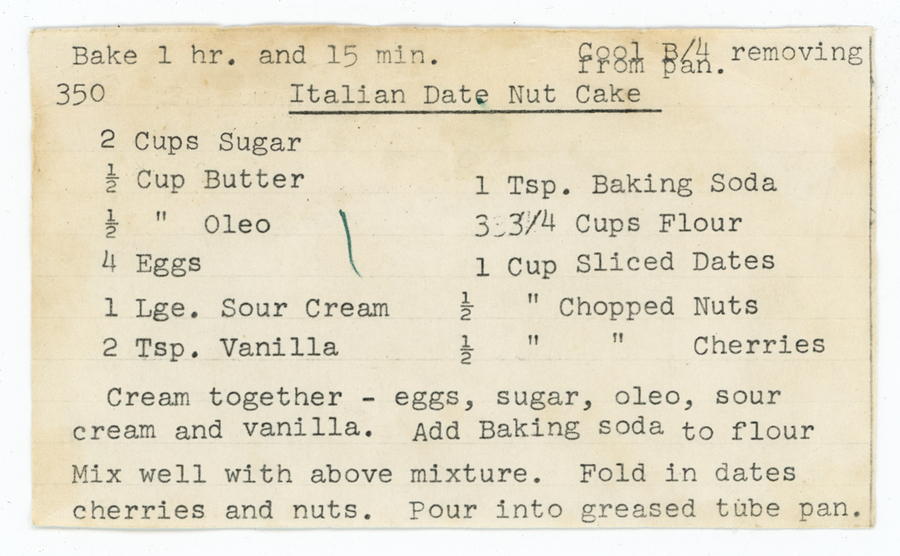 Bake 1 hr. and 15 min. Cool B/4 removing
from pan.
350 Italian Date Nut Cake
2 Cups Sugar
½ Cup Butter 1 Tsp. Baking Soda
½ " Oleo 3 3/4 Cups Flour
4 Eggs 1 Cup Sliced Dates
1 Lge. Sour Cream ½ " Chopped Nuts
2 Tsp. Vanilla ½ " " Cherries
Cream together - eggs, sugar, oleo, sour
cream and vanilla. Add Baking soda to flour
Mix well with above mixture. Fold in dates
cherries and nuts. Pour into greased tube pan.